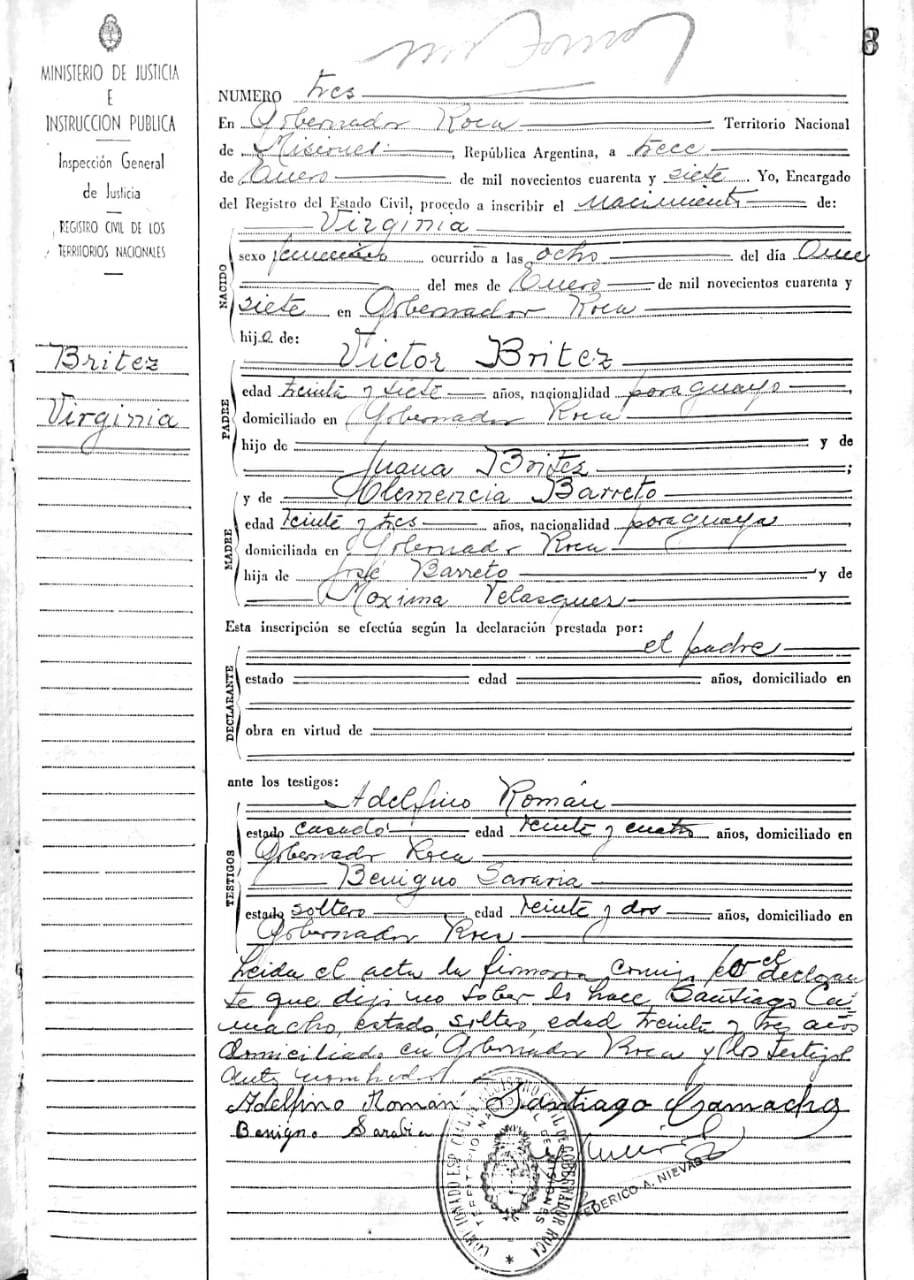 3
MINISTERIO DE JUSTICIA
E
INSTRUCCION PUBLICA
Inspección General
de Justicia
REGISTRO CIVIL DE LOS
TERRITORIOS NACIONALES
Britez
Virginia
NUMERO tres
En Gobernador Roca Territorio Nacional
de Misiones, República Argentina, a trece
de Enero de mil novecientos cuarenta y siete. Yo, Encargado
del Registro del Estado Civil, procedo a inscribir el nacimiento de:
NACIDO
Virginia
sexo femenino ocurrido a las ocho del día Once
del mes de Enero de mil novecientos cuarenta y
siete en Gobernador Roca
hija de:
PADRE
Victor Britez
edad treinta y siete años, nacionalidad paraguayo,
domiciliado en Gobernador Roca
hijo de y de
Juana Britez;
MADRE
y de Clemencia Barreto
edad veinte y tres años, nacionalidad paraguaya,
domiciliada en Gobernador Roca
hija de José Barreto y de
Maxima Velasquez
Esta inscripción se efectúa según la declaración prestada por:
el padre
DECLARANTE
estado edad años, domiciliado en
obra en virtud de
ante los testigos:
TESTIGOS
Adelfino Román
estado casado edad veinte y cuatro años, domiciliado en
Gobernador Roca
Benigno Sararia
estado soltero edad veinte y dos años, domiciliado en
Gobernador Roca
Leida el acta la firmaron conmigo por el declaran
te que dijo no saber lo hace Santiago Ca
macho, estado soltero, edad treinta y tres años
domiciliado en Gobernador Roca y los testigos
ante nombrados
Adelfino Román Santiago Camacho
Benigno Sarabia
FEDERICO A. NIEVAS
REGISTRO CIVIL DE GOBERNADOR ROCA
TERRITORIO NACIONAL DE MISIONES